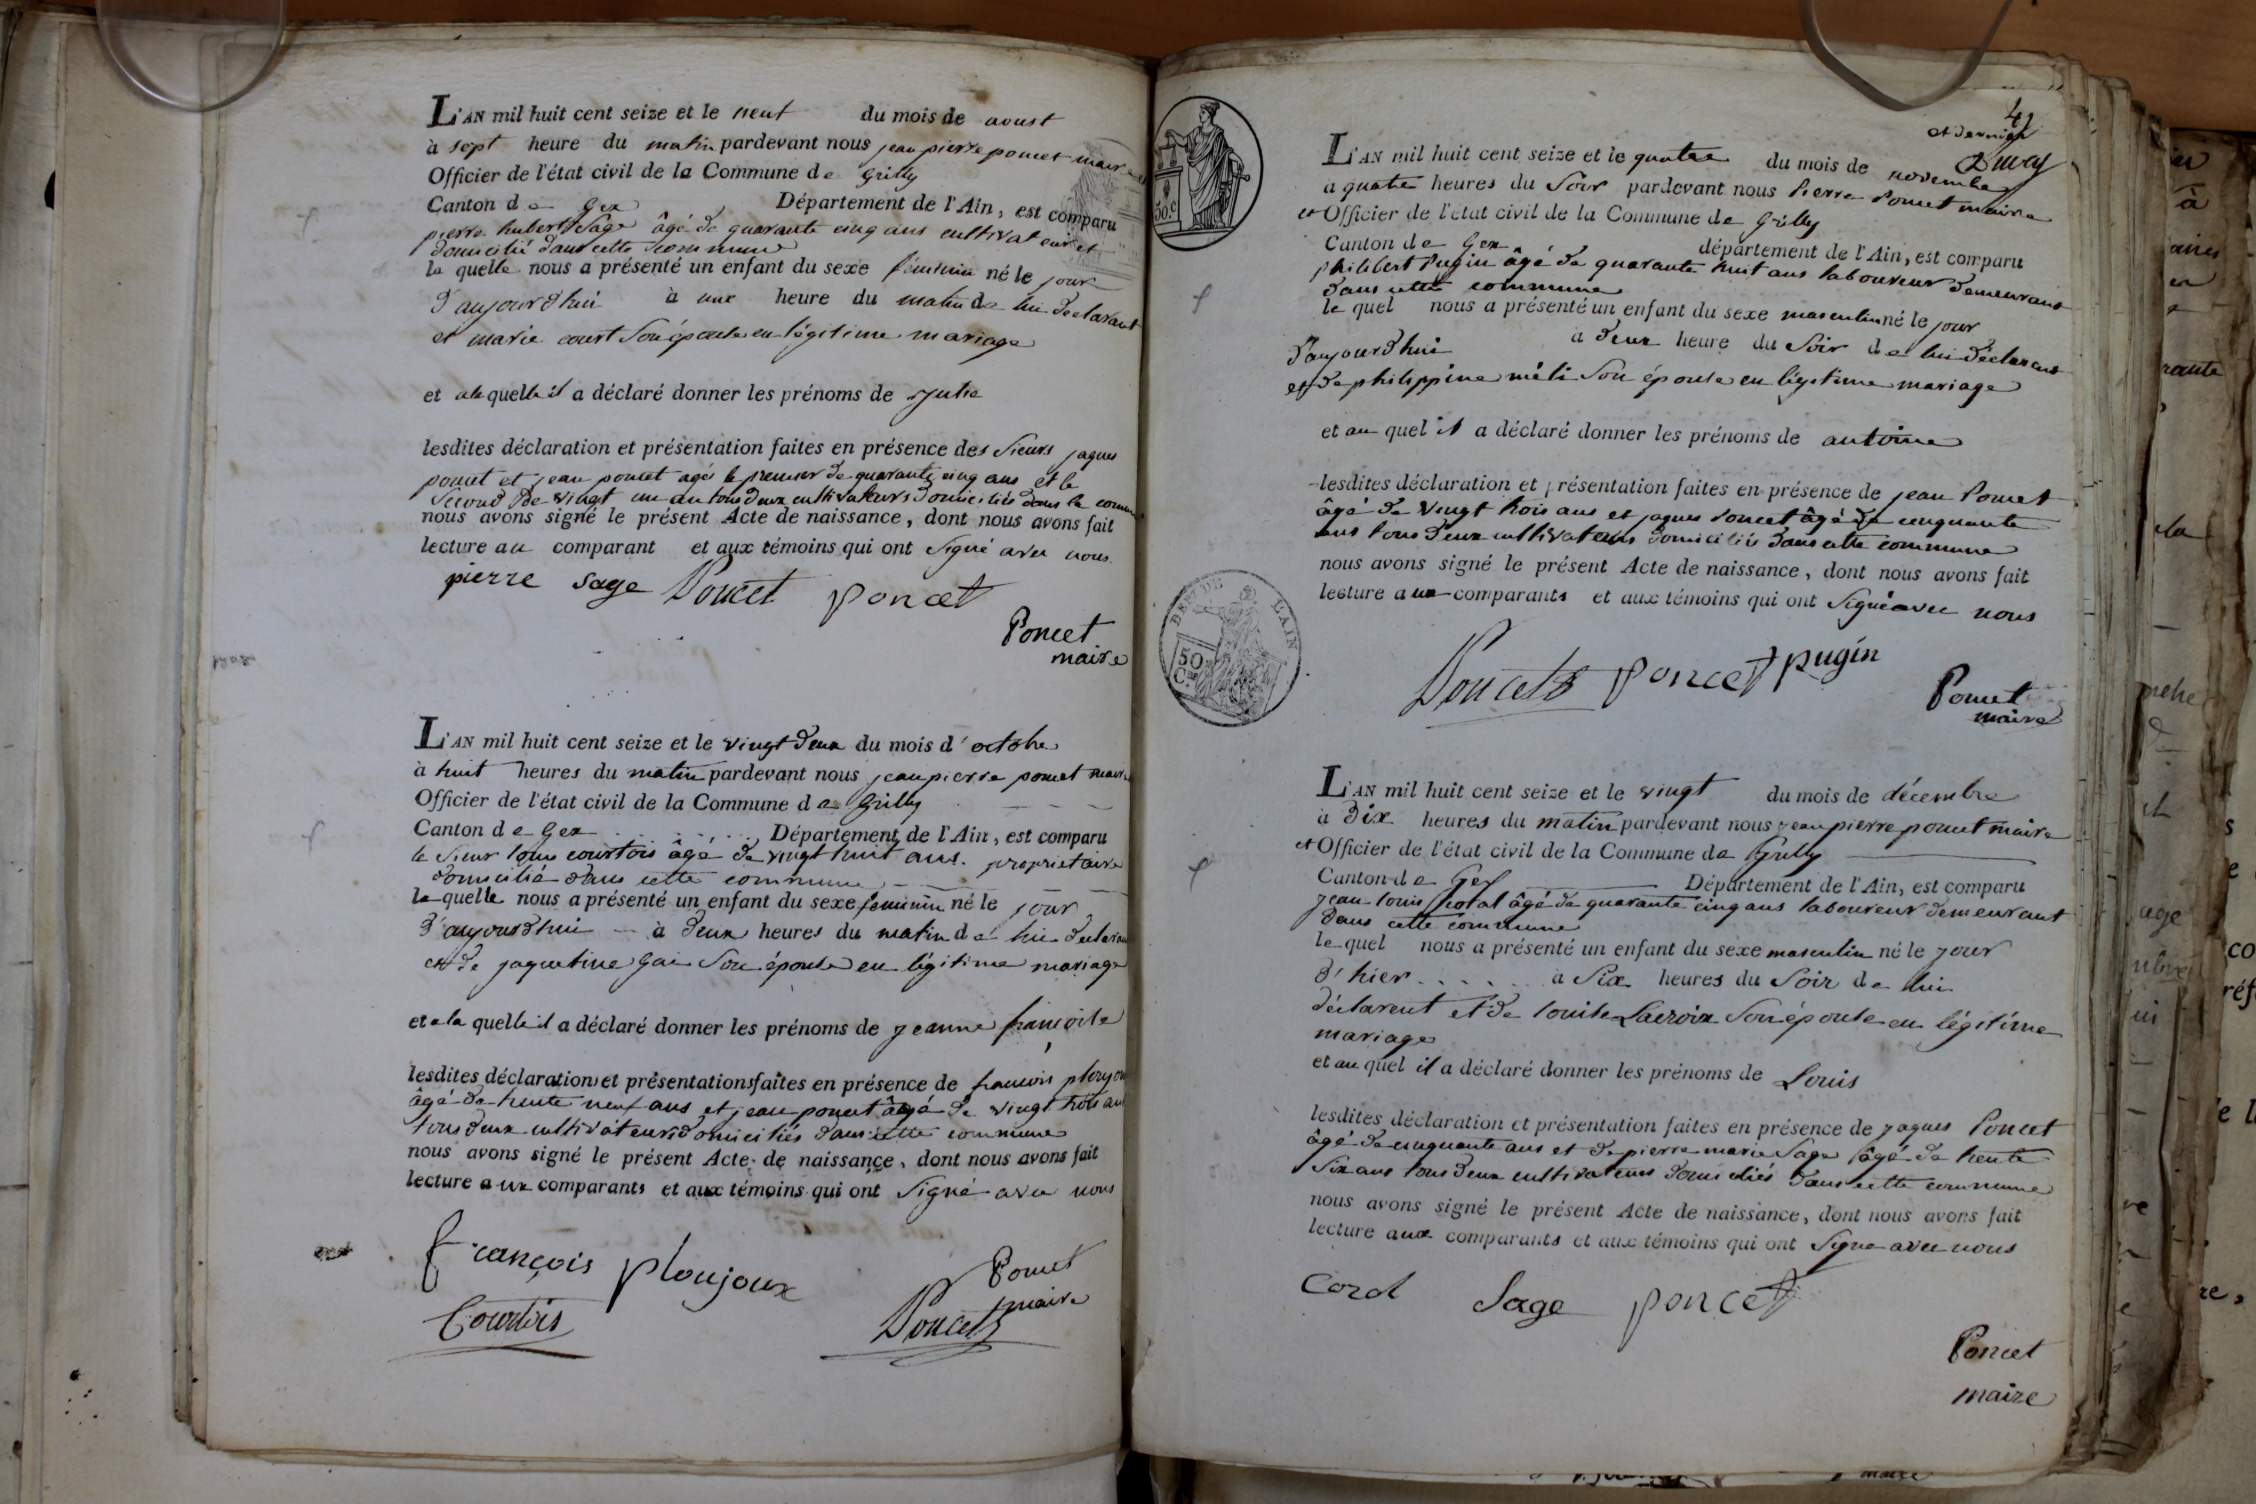 L'AN mil huit cent seize et le neuf du mois de aoust
à sept heure du matin pardevant nous jean pierre poncet maire
Officier de l'état civil de la Commune de Grilly
Canton de Gex Département de l'Ain, est comparu
pierre hubert Sage âgé de quarante cinq ans cultivateur et
domicilié dans cette commune
la quelle nous a présenté un enfant du sexe féminin né le jour
d'aujourd'hui à une heure du matin de lui déclarant
et marie court son épouse en légitime mariage
et ala quelle il a déclaré donner les prénoms de Julie
lesdites déclaration et présentation faites en présence des Sieurs jaques
poncet et jean poncet agés le premier de quarante cinq ans et le
second de vingt un an tous deux cultivateurs domiciliés dans la commune
nous avons signé le présent Acte de naissance, dont nous avons fait
lecture au comparant et aux témoins qui ont Signé avec nous.
pierre sage Poncet poncet
Poncet
maire
L'AN mil huit cent seize et le vingt deux du mois d'octobre
à huit heures du matin pardevant nous jean pierre poncet maire
Officier de l'état civil de la Commune de Grilly
Canton de Gex Département de l'Ain, est comparu
le Sieur louis courtois âgé de vingt huit ans. proprietaire
domicilié dans cette commune
la quelle nous a présenté un enfant du sexe feminin né le jour
d'aujourd'hui à deux heures du matin de lui declarant
et de jaqueline Gai Son épouse en légitime mariage
et a la quelle il a déclaré donner les prénoms de jeanne françoise
lesdites déclarations et présentations faites en présence de francois
âgé de trente neuf ans et jean poncet âgé de vingt trois ans
tous deux cultivateurs domiciliés dans cette commune
nous avons signé le présent Acte de naissance, dont nous avons fait
lecture aux comparants et aux témoins qui ont Signé avec nous
françois ploujoux
Poncet
maire
Courtois
Poncet
42
et dernier
L'AN mil huit cent seize et le quatre du mois de novembre
a quatre heures du Soir pardevant nous Pierre Poncet maire
et Officier de l'état civil de la Commune de Grilly
Canton de Gex département de l'Ain, est comparu
philibert Pugin âgé de quarante huit ans laboureur demeurant
dans cette commune
le quel nous a présenté un enfant du sexe masculin né le jour
d'aujourd'hui à deux heure du Soir de lui déclarant
et de philippine méli Son épouse en légitime mariage
et au quel il a déclaré donner les prénoms de antoine
lesdites déclaration et présentation faites en présence de jean Poncet
âgé de vingt trois ans et jaques Poncet âgé de cinquante
ans tous deux cultivateurs domiciliés dans cette commune
nous avons signé le présent Acte de naissance, dont nous avons fait
lecture aux comparants et aux témoins qui ont Signé avec nous
Poncet poncet pugin
Poncet
maire
DEPT. DE L'AIN
50
C.
L'AN mil huit cent seize et le vingt du mois de décembre
à Dix heures du matin pardevant nous jean pierre poncet maire
et Officier de l'état civil de la Commune de Grilly
Canton de Gex Département de l'Ain, est comparu
jean louis âgé de quarante cinq ans laboureur demeurant
dans cette commune
le quel nous a présenté un enfant du sexe masculin né le jour
d'hier à Six heures du Soir de lui
déclarent et de louise Lacroix Son épouse en légitime
mariage
et au quel il a déclaré donner les prénoms de Louis
lesdites déclaration et présentation faites en présence de jaques Poncet
âgé de cinquante ans et de pierre marie Sage âgé de trente
Six ans tous deux cultivateurs domiciliés dans cette commune
nous avons signé le présent Acte de naissance, dont nous avons fait
lecture aux comparants et aux témoins qui ont Signe avec nous
Corol Sage poncet
Poncet
maire